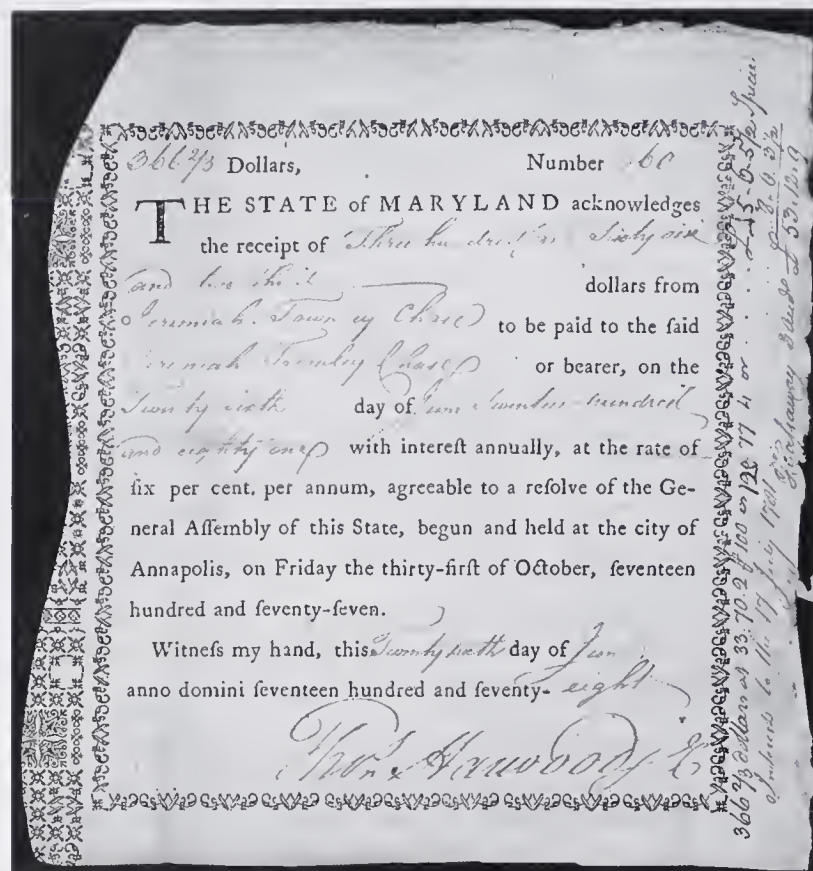 366 2/3 Dollars, Number 60
THE STATE of MARYLAND acknowledges
the receipt of Three hundred Sixty six
and two third dollars from
Jeremiah Townley Chase to be paid to the ſaid
Jeremiah Townley Chase or bearer, on the
Twenty sixth day of June Seventeen hundred
and eighty one with intereſt annually, at the rate of
ſix per cent. per annum, agreeable to a reſolve of the Ge-
neral Aſſembly of this State, begun and held at the city of
Annapolis, on Friday the thirty-firſt of October, ſeventeen
hundred and ſeventy-ſeven.
Witneſs my hand, this Twenty sixth day of June
anno domini ſeventeen hundred and ſeventy- eight
Thos. Harwood
366 2/3 dollars at 33.70.2 ⅌ 100 is 123 77 4 or £ 5 0 5 1/2 Specie
Interest to the 17 July 1781